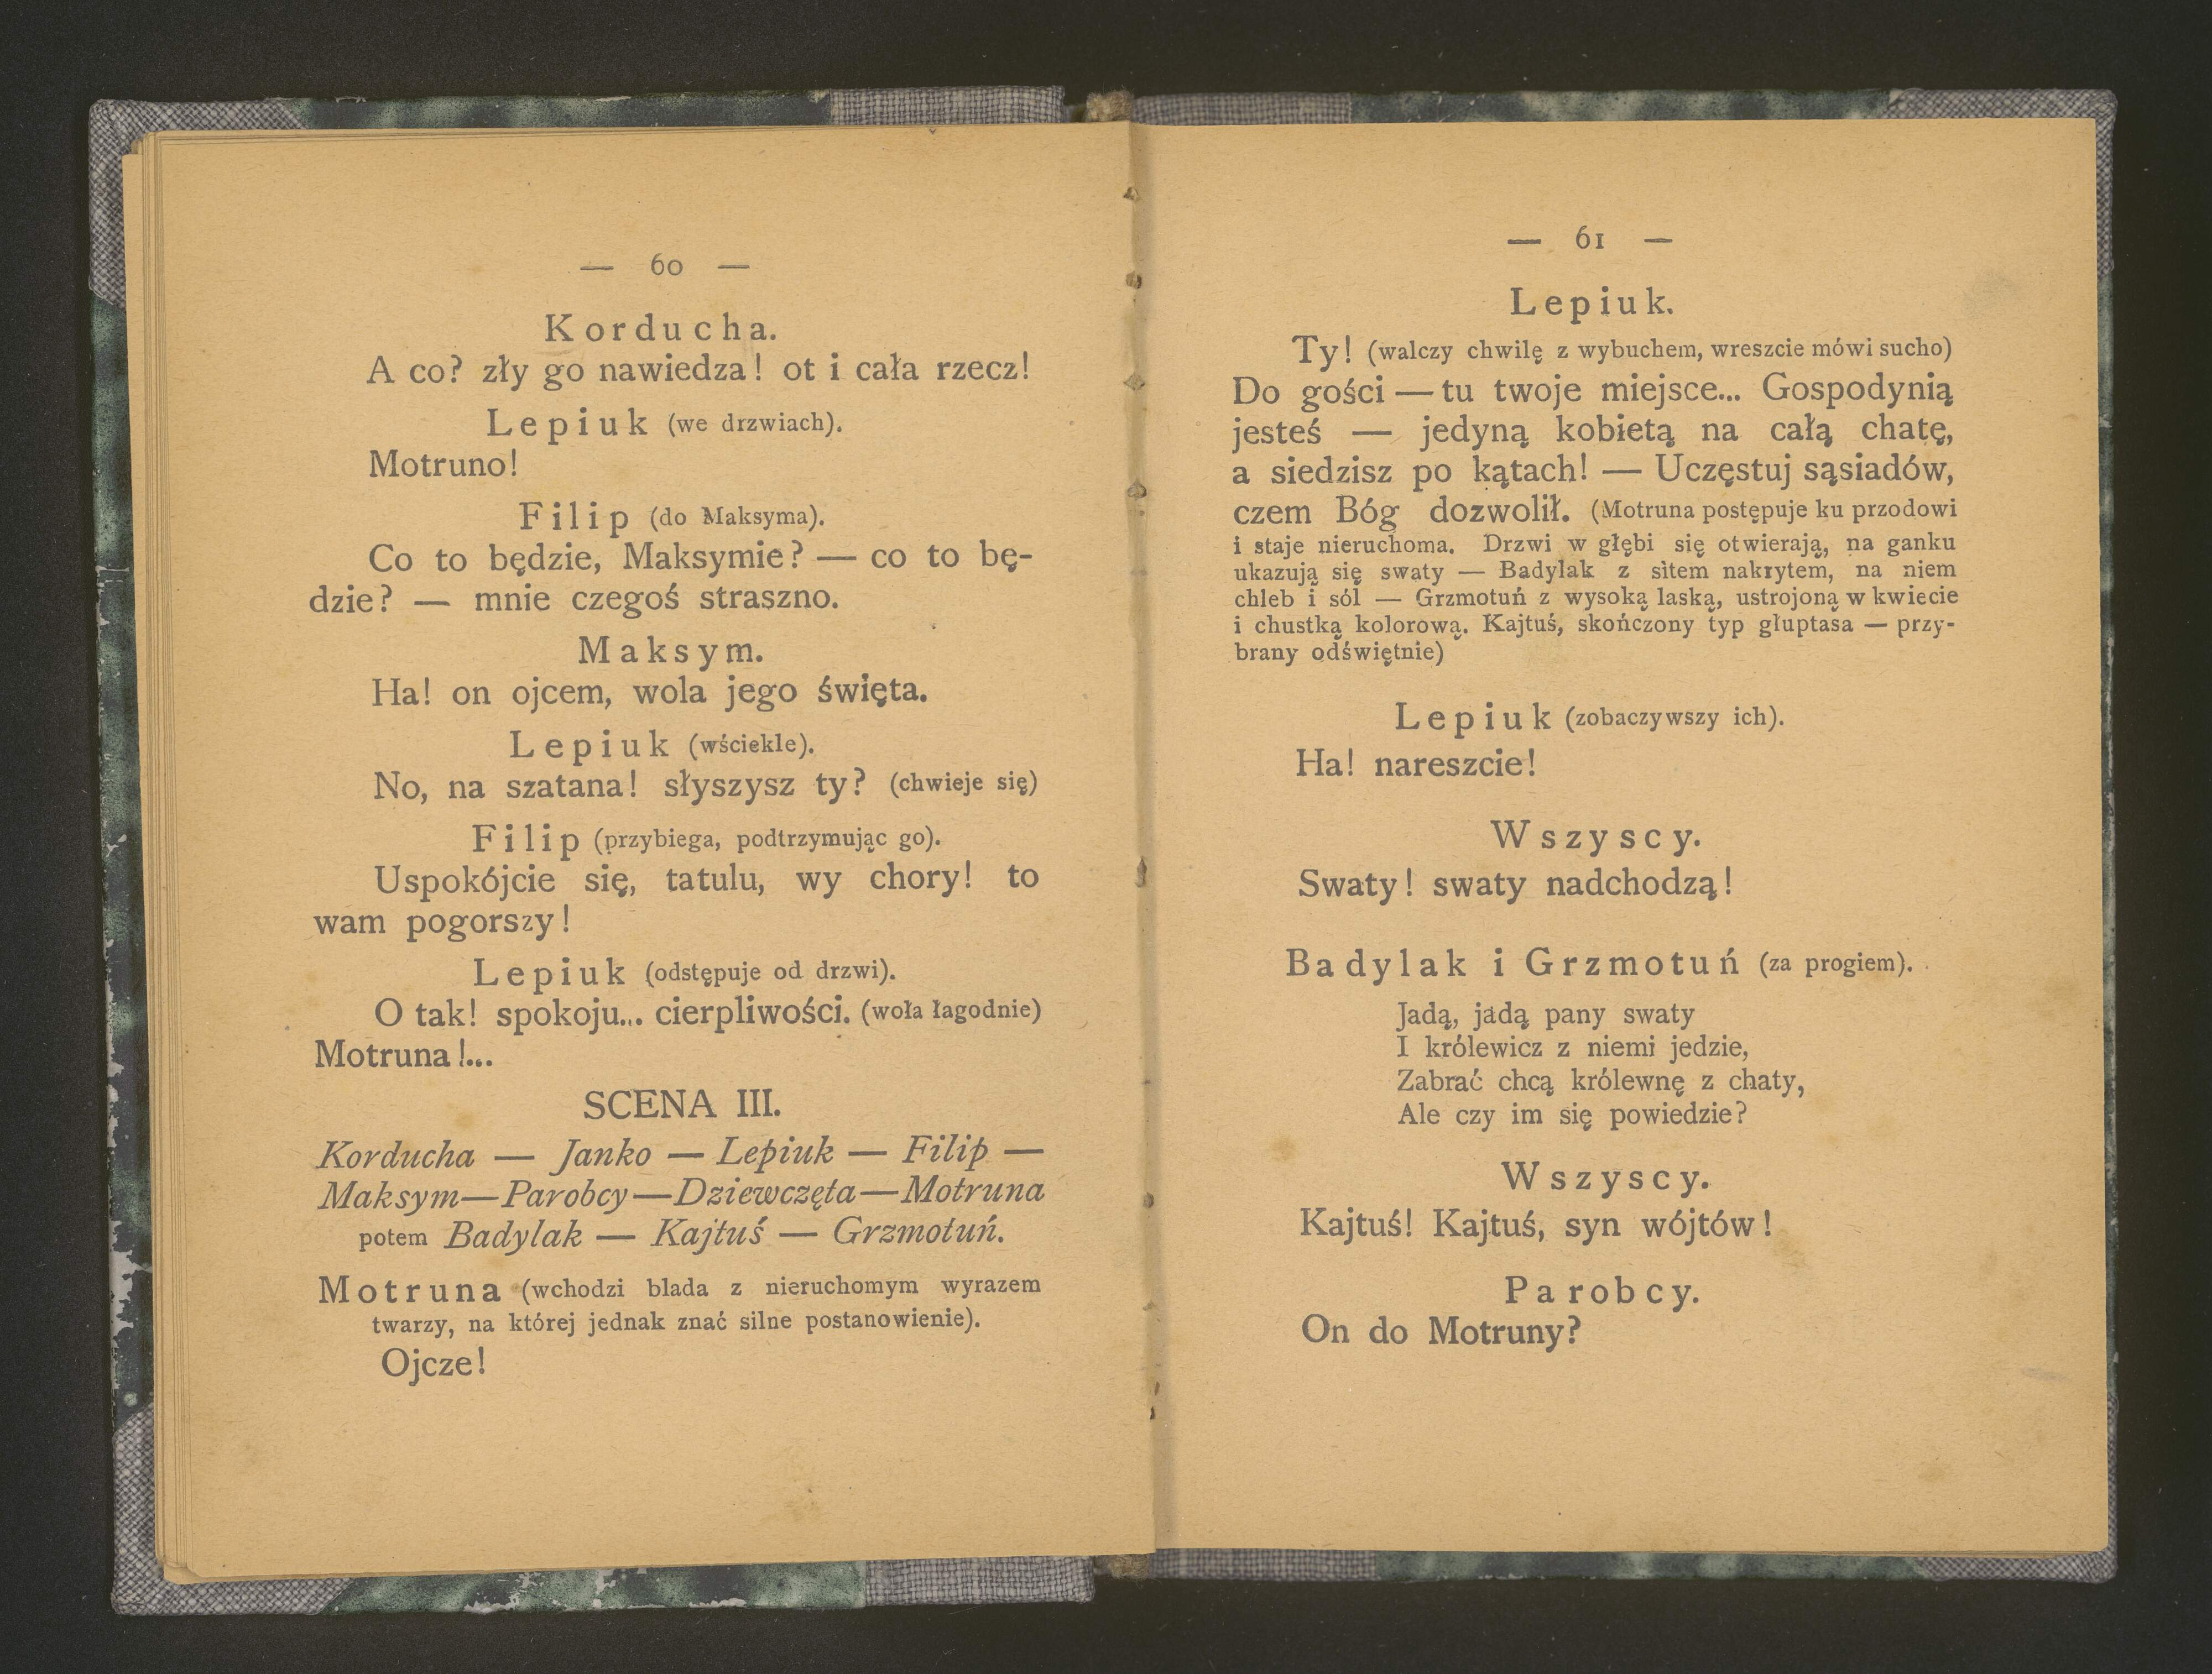 — 60 —
Korducha.
A co? zły go nawiedza! ot i cała rzecz!
Lepiuk (we drzwiach).
Motruno!
Filip (do Maksyma).
Co to będzie, Maksymie? — co to bę-
dzie? — mnie czegoś straszno.
Maksym.
Ha! on ojcem, wola jego święta.
Lepiuk (wściekle).
No, na szatana! słyszysz ty? (chwieje się)
Filip (przybiega, podtrzymując go).
Uspokójcie się, tatulu, wy chory! to
wam pogorszy!
Lepiuk (odstępuje od drzwi).
O tak! spokoju... cierpliwości. (woła łagodnie)
Motruna!...
SCENA III.
Korducha — Janko — Lepiuk — Filip —
Maksym—Parobcy—Dziewczęta—Motruna
potem Badylak — Kajtuś — Grzmotuń.
Motruna (wchodzi blada z nieruchomym wyrazem
twarzy, na której jednak znać silne postanowienie).
Ojcze!
— 61 —
Lepiuk.
Ty! (walczy chwilę z wybuchem, wreszcie mówi sucho)
Do gości — tu twoje miejsce... Gospodynią
jesteś — jedyną kobietą na całą chatę,
a siedzisz po kątach! — Uczęstuj sąsiadów,
czem Bóg dozwolił. (Motruna postępuje ku przodowi
i staje nieruchoma. Drzwi w głębi się otwierają, na ganku
ukazują się swaty — Badylak z sitem nakrytem, na niem
chleb i sól — Grzmotuń z wysoką laską, ustrojoną w kwiecie
i chustką kolorową. Kajtuś, skończony typ głuptasa — przy-
brany odświętnie)
Lepiuk (zobaczywszy ich).
Ha! nareszcie!
Wszyscy.
Swaty! swaty nadchodzą!
Badylak i Grzmotuń (za progiem).
Jadą, jadą pany swaty
I królewicz z niemi jedzie,
Zabrać chcą królewnę z chaty,
Ale czy im się powiedzie?
Wszyscy.
Kajtuś! Kajtuś, syn wójtów!
Parobcy.
On do Motruny?